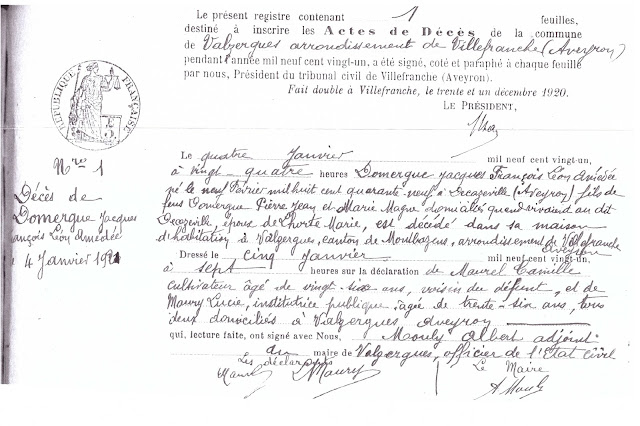 Le présent registre contenant 1 feuilles,
destiné à inscrire les Actes de Décès de la commune
de Valzergues arrondissement de Villefranche (Aveyron)
pendant l'année mil neuf cent vingt-un, a été signé, coté et paraphé à chaque feuille
par nous, Président du tribunal civil de Villefranche (Aveyron).
Fait double à Villefranche, le trente et un décembre 1920.
LE PRÉSIDENT,
RÉPUBLIQUE FRANÇAISE
N° 1
Décès de
Domergue Jacques
François Léon Amédée
4 Janvier 1921
Le quatre Janvier mil neuf cent vingt-un,
à vingt-quatre heures Domergue Jacques François Léon Amédée
né le neuf Février mil huit cent quarante-neuf à Decazeville (Aveyron) fils de
feus Domergue Pierre Jean et Marie Magne domiciliés quand vivaient au dit
Decazeville, époux de Lhorte Marie, est décédé dans sa maison
d'habitation à Valzergues, canton de Montbazens, arrondissement de Villefranche
Aveyron
Dressé le cinq Janvier mil neuf cent vingt-un,
à sept heures sur la déclaration de Maurel Camille
cultivateur âgé de vingt-six ans, voisin du défunt, et de
Maury Lucie, institutrice publique âgée de trente-six ans, tous
deux domiciliés à Valzergues Aveyron
qui, lecture faite, ont signé avec Nous, Mouly Albert adjoint
au maire de Valzergues, officier de l'Etat Civil
Les déclarants Le Maire
Maurel Maury A Mouly